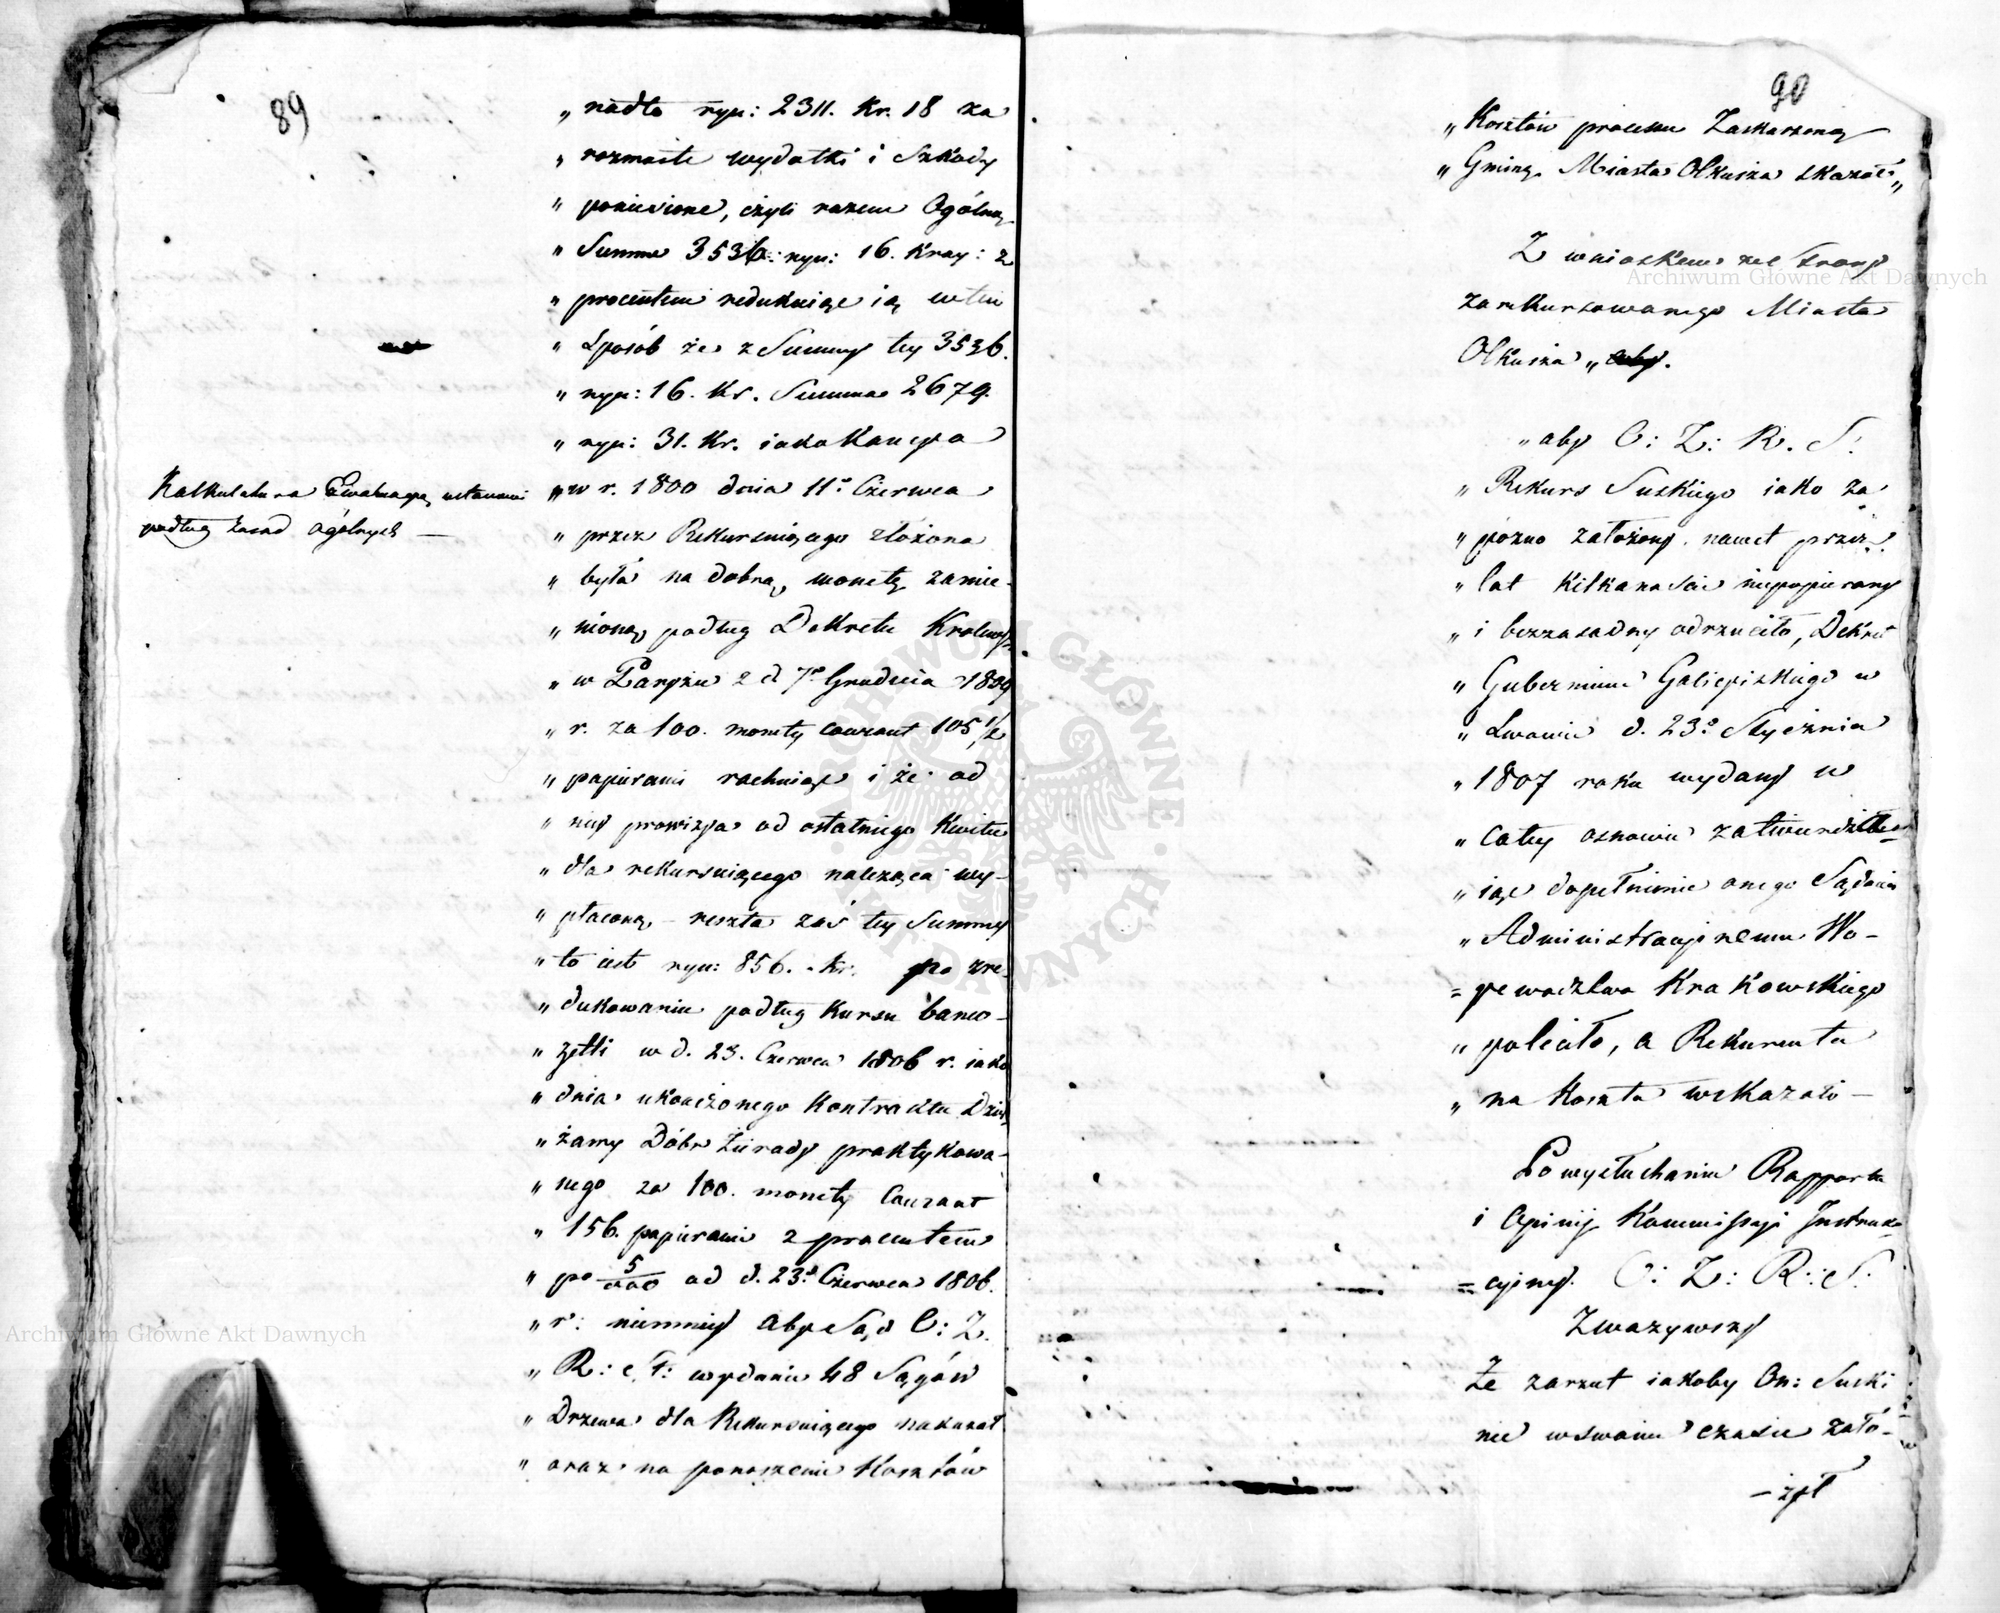 89
„ nadto ryn: 2311. Kr. 18 za
„ rozmaite wydatki i Szkody
„ poniesione, czyli razem Ogólną
„ Summę 3536: ryn: 16. Kray: z
„ procentem redukuiąc ią w ten
„ sposób że z Summy tey 3536.
„ ryn: 16. Kr. Summa 2679.
„ ryn: 31. Kr. iako Kaucya
„ w r. 1800 dnia 11º Czerwca
„ przez Rekursuiącego złożona
„ była na dobrą monetę zamie-
„ nioną podług Dekretu Królewsk:
„ w Paryżu z d 7º Grudnia 1809
„ r. za 100. monety courant 105 1/2
„ papierami rachuiąc i że od
„ niey prowizya od ostatniego Kwitu
„ dla rekursuiącego należąca wy-
„ płaconą – reszta zaś tey Summy
„ to iest ryn: 856. – kr. po zre-
„ dukowaniu podług Kursu banco-
„ zetli w d. 23. Czerwca 1806 r. iako
„ dnia ukończonego Kontraktu Dzier
„ żawy Dóbr Żurady praktykowa-
„ nego za 100. monety Courant
„ 156. papierami z procentem
„ po 5/000 od d. 23º Czerwca 1806.
„ r: niemniey aby Sąd O: Z.
„ R: S: wydanie 48 Sągów
„ Drzewa dla Rekursuiącego nakazał
„ oraz na ponoszenie Kosztów
Kalkulatura Ewaluacyą ustanowi
podług Zasad Ogólnych —
90
„ Kosztów processu Zaskarżoną
„ Gminę Miasta Olkusza skazał „
Z wnioskiem ze Strony
zarekursowanego Miasta
Olkusza „
„ aby O: Z: R. S:
„ Rekurs Suskiego iako za
„ pozno założony nawet przez
„ lat Kilkanaście niepopierany
„ i bezzasadny odrzuciło, Dekret
„ Gubernium Galicyiskiego w
„ Lwowie d. 23º Stycznia
„ 1807 roku wydany w
„ całey osnowie zatwierdziło
„ iąc dopełnienie onego Sądowi
„ Administracyinemu Wo-
= iewodztwa Krakowskiego
„ poleciło, a Rekurenta
„ na Koszta wskazało —
Po wysłuchaniu Rapportu
i Opinij Kommissyi Instruk-
= cyiney. O: Z: R: S:
Zważywszy
Że zarzut iakoby On: Suski
nie w swoim czasie zało-
– żył
Archiwum Główne Akt Dawnych
Archiwum Główne Akt Dawnych
ARCHIWUM GŁÓWNE AKT DAWNYCH